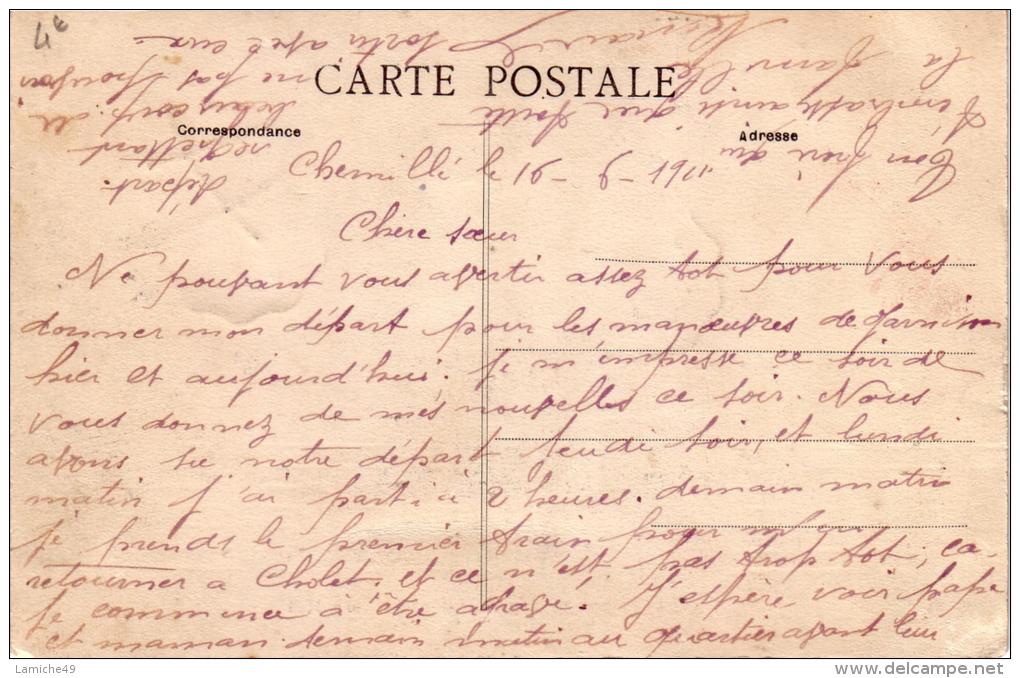 4e
CARTE POSTALE
Correspondance
Adresse
Chemillé le 16 - 6 - 1911
Chère sœur
Ne pouvant vous avertir assez tot pour vous
donner mon départ pour les manœuvres de garnison
hier et aujourd'hui. je m'impresse ce soir de
vous donnez de mes nouvelles ce soir. Nous
avons su notre départ jeudi soir, et lundi
matin j'ai parti à 2 heures. demain matin
je prends le premier train pour
retourner a Cholet, et ce n'est pas trop tot, ca-
je commence à être
J'espère voir papa
et maman demain matin au quartier avant leur
départ.
regrettant
beaucoup de
ne pas pouvoir
sortir avec eux
Ton frère qui
t'embrasse ainsi que toute
la famille
Lamiche49
© delcampe.net